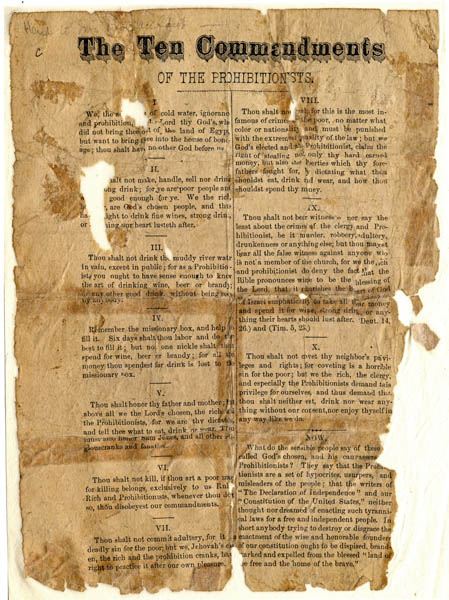 The Ten Commandments
OF THE PROHIBITIONISTS.
I
We, the of cold water, ignoranc
and prohibition, ord thy God's, who
did not bring thee of the land of Egyp,
but want to bring ee into the house of bond-
age; thou shalt have no other God before us
II.
not make, handle, sell nor drink
ng drink; for ye are poor people and
good enough for ye. We the rich
are God's chosen people, and thus
ight to drink fine wines, strong drin
thing our heart lusteth after.
III.
Thou shalt not drink the muddy river watr
in vain, except in public; for as a Prohibitio-
ist you ought to have sense enough to know
the art of drinking wine, beer or brandy;
or any other good drink, without being
by anybody.
IV.
Remember the missionary box, and help
fill it; Six days shalt thou labor and do
best to fill it; but no, one nickle shalt thou
spend for wine, beer or brandy; for all
money thou spendest for drink is lost to
missionary box.
V.
Thou shalt honor thy father and mother;
above all we the Lord's chosen, the rich a
the Prohibitionists, for we are thy
and tell thee what to eat, drink or wear.
must also honor Sam Jones, and all other
giouscranks and fanatics.
VI.
Thou shalt not kill, if thou art a poor man
for killing belongs, exclusively to us
Rich and Prohibitionists, whenever thou do
so, thou disobeyest our commandments.
VII.
Thou shalt not commit adultery, for it
deadly sin for the poor; but we, Jehovah's
en, the rich and the prohibition cranks,
right to practice it after our own pleasure.
VIII.
Thou shalt not for this is the most in-
famous of crimes the poor, no matter what
color or nationality and must be punished
with the extreme nality of the law; but we
God's elected and Prohibitionist, claim the
right of stealing not only thy hard earned
money, but also the liberties which thy fore-
fathers fought for, by dictating what thou
shouldst eat, drink and wear, and how thou
shouldst spend thy money.
IX.
Thou shalt not beer witness nor say the
least about the crimes of the clergy and Pro-
hibitionist, be it murder, robbery, adultery,
drunkenness or anything else; but thou mayest
bear all the false witness against anyone who
is not a member of the church, for we the,
and prohibitionist do deny the fact that the
Bible pronounces wine to be the blessing of
the Lord, that it
of Israel emphatically to take all their money
and spend it for wine, strong drink, or any-
thing their hearts should lust after. Deut. 14,
26.) and (Tim. 5, 23.)
X.
Thou shalt not covet thy neighbor's privi-
leges and rights; for coveting is a horrible
sin for the poor; but we the rich, the clergy,
and especially the Prohibitionists demand this
privilege for ourselves, and thus demand that
thou shalt neither eat, drink nor wear any-
thing without our consent, nor enjoy thyself in
any way like we do.
NOW,
What do the sensible people say of these
called God's chosen, and his
Prohibitionists? They say that the Proh-
itionists are a set of hypocrites, usurpers, and
misleaders of the people; that the writers of
"The Declaration of Independence" and our
"Constitution of the United States," neither
thought nor dreamed of enacting such tyranni-
cal laws for a free and independent people. In
short anybody trying to destroy or disgrace the
enactment of the wise and honorable founders
of our constitution ought to be dispised, brand-
marked and expelled from the blessed "land of
the free and the home of the brave."